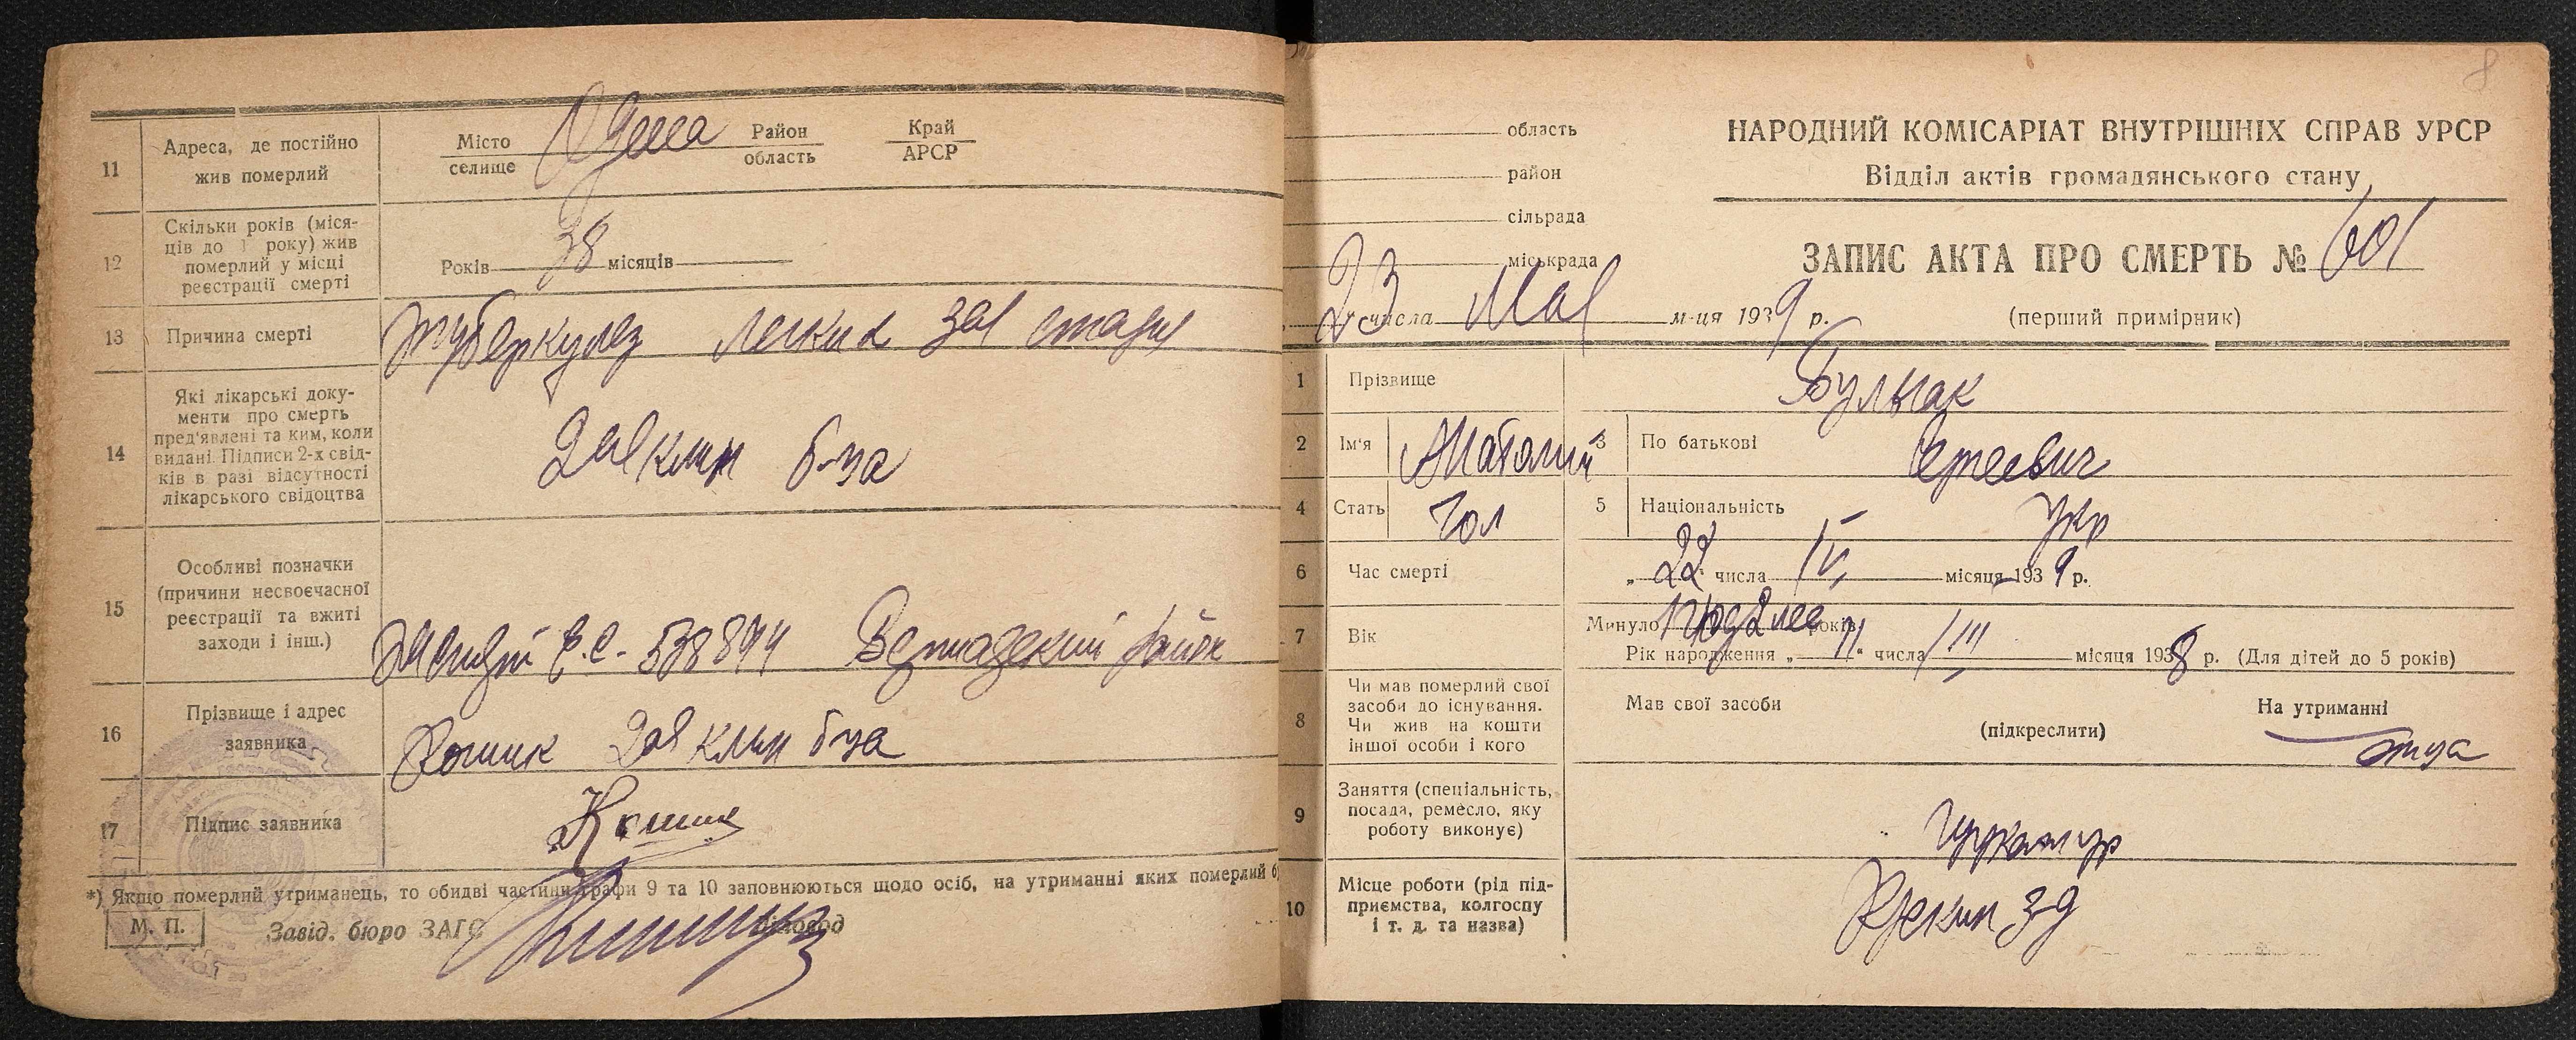 11
Адреса, де постійно
жив померлий
Місто
селище
Одеса
Район
область
Край
АРСР
12
Скільки років (міся-
ців до 1 року) жив
померлий у місці
реєстрації смерті
Років 38 місяців
13
Причина смерті
туберкулез легких
14
Які лікарські доку-
менти про смерть
пред'явлені та ким, коли
видані. Підписи 2-х свід-
ків в разі відсутності
лікарського свідоцтва
клин б-ца
15
Особливі позначки
(причини несвоєчасної
реєстрації та вжиті
заходи і інш.)
538894 район
16
Прізвище і адрес
заявника
клин б-ца
17
Підпис заявника
*) Якщо померлий утриманець, то обидві частини графи 9 та 10 заповнюються щодо осіб, на утриманні яких померлий
М. П.
Завід. бюро ЗАГС
8
область
район
сільрада
міськрада
23 числа Мая м-ця 1939 р.
НАРОДНИЙ КОМІСАРІАТ ВНУТРІШНІХ СПРАВ УРСР
Відділ актів громадянського стану
ЗАПИС АКТА ПРО СМЕРТЬ № 601
(перший примірник)
1
Прізвище
2
Ім'я
Анатолий
3
По батькові
Сергеевич
4
Стать
Чол
5
Національність
Укр
6
Час смерті
„22" числа IV місяця 1939 р.
7
Вік
Минуло 1 год 2 мес років
Рік народження „11" числа III місяця 1938 р. (Для дітей до 5 років)
8
Чи мав померлий свої
засоби до існування.
Чи жив на кошти
іншої особи і кого
Мав свої засоби
(підкреслити)
На утриманні
отца
9
Заняття (спеціальність,
посада, ремесло, яку
роботу виконує)
10
Місце роботи (рід під-
приємства, колгоспу
і т. д. та назва)